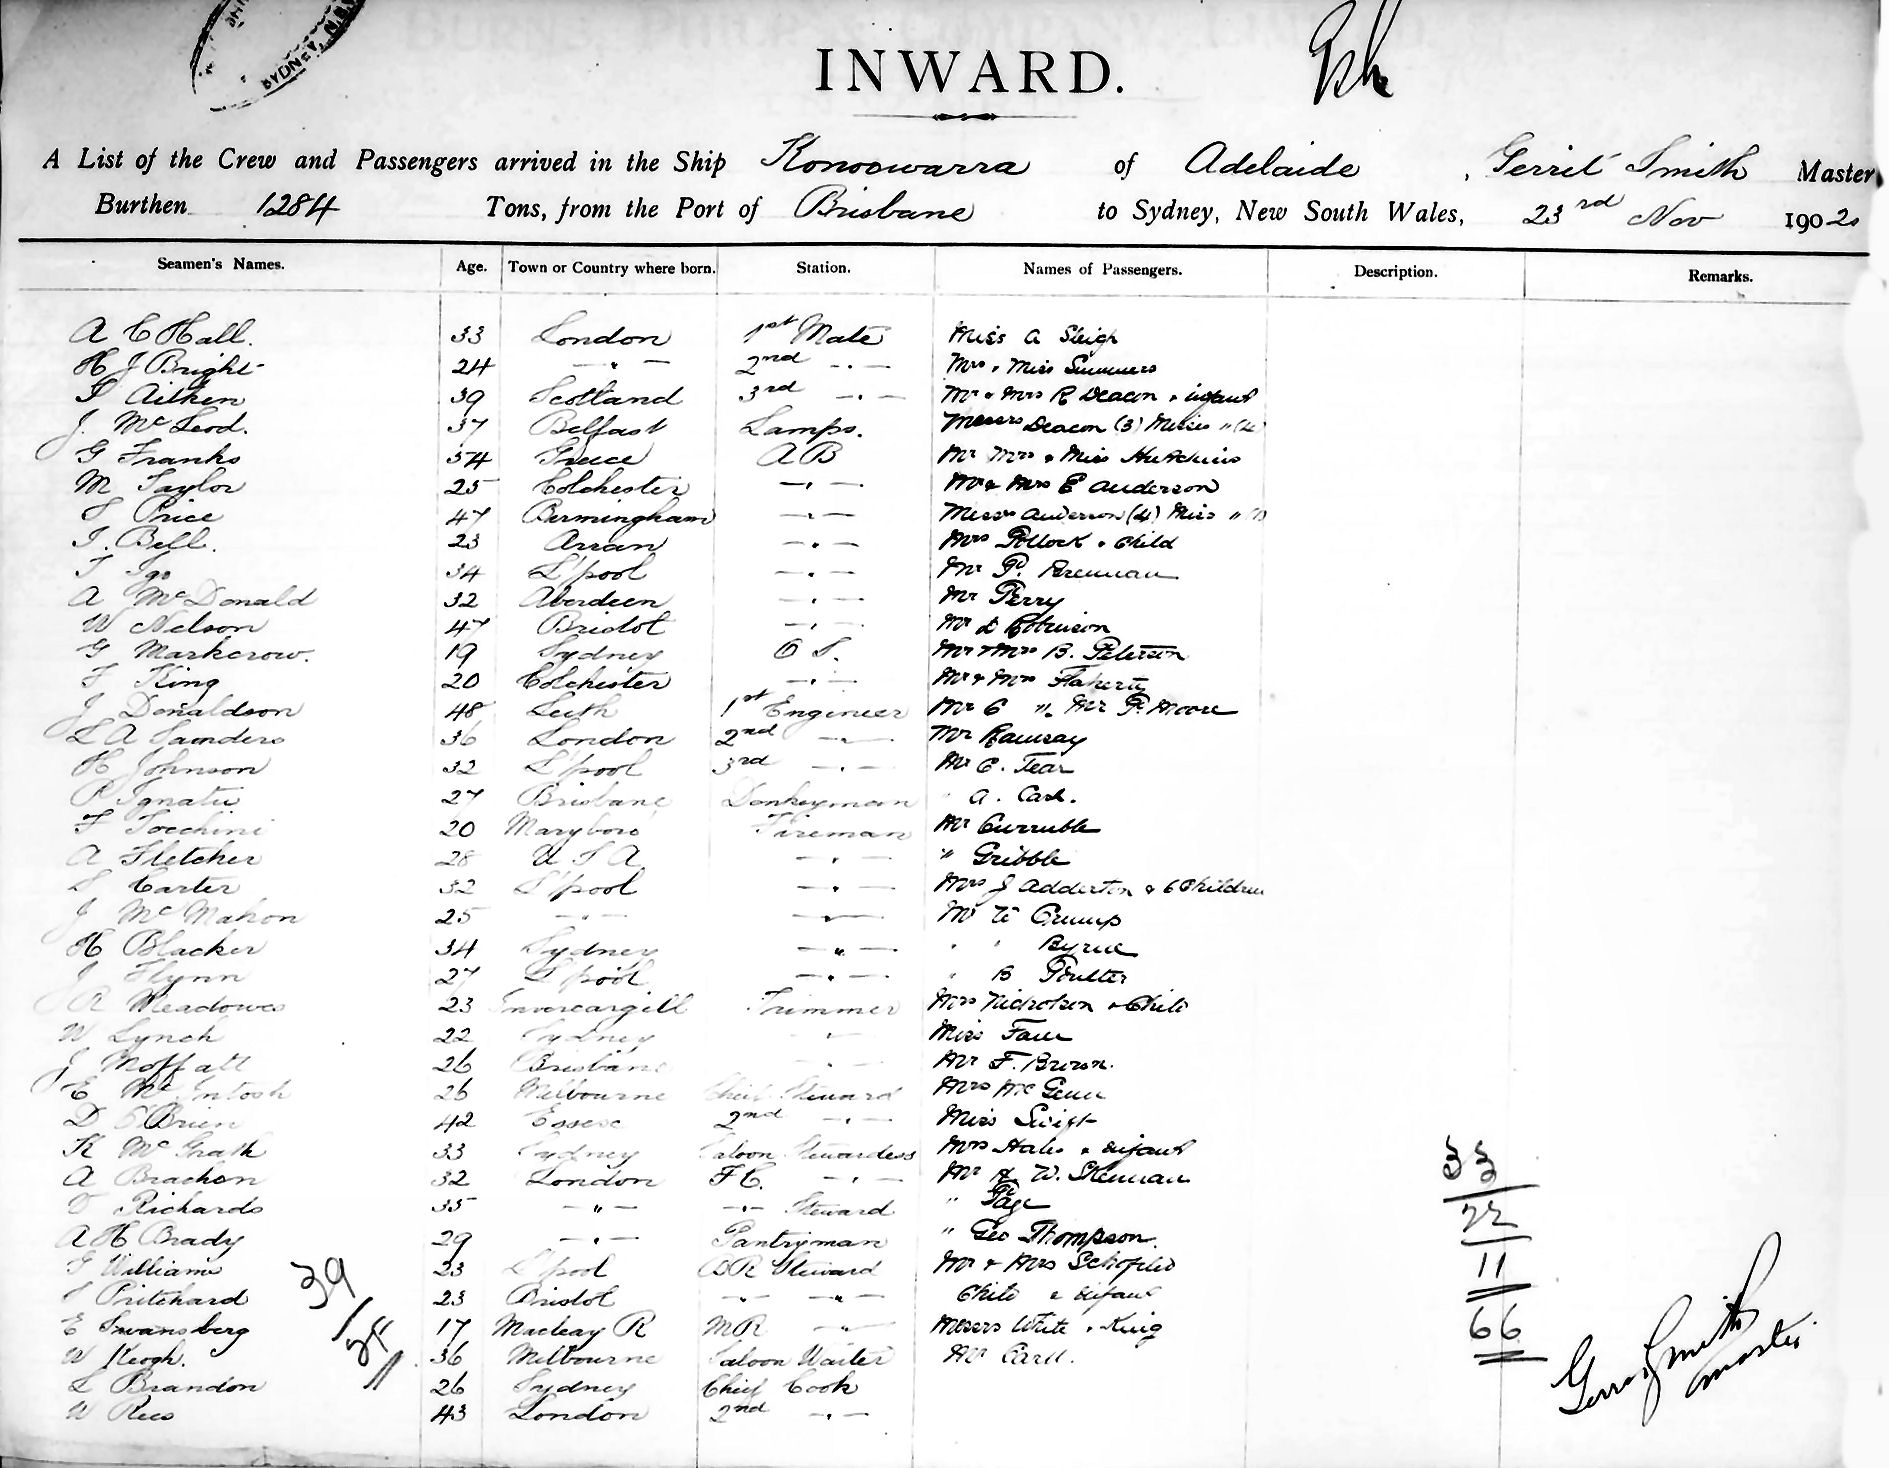 SYDNEY
INWARD.
A List of the Crew and Passengers arrived in the Ship Konoowarra of Adelaide, Gerrit Smith Master
Burthen 1284 Tons, from the Port of Brisbane to Sydney, New South Wales, 23rd Nov 1902
Seamen's Names. Age. Town or Country where born. Station. Names of Passengers. Description. Remarks.
A C Hall. 33 London 1st Mate Miss A Sleigh
H J Bright 24 — " — 2nd — " — Mrs & Miss Summers
Aitken 39 Scotland 3rd — " — Mr & Mrs R Deacon & infant
J. McLeod. 37 Belfast Lamps. Messrs Deacon (3) Misses "
G Franks 34 Greece A B Mr Mrs & Miss Hutchins
M Taylor 25 Colchester — " — Mr & Mrs E Anderson
S Price 47 Birmingham — " — Messrs Anderson (4) Miss "
Bell. 23 Arran — " — Mrs Pollock & Child
Igo 34 L'pool — " — Mr P. Brennan
A McDonald 32 Aberdeen — " — Mr Perry
W Nelson 47 Bristol — " — Mr Robinson
G Markcrow. 19 Sydney O S. Mr & Mrs B. Peterson
King 20 Colchester — " — Mr & Mrs Flaherty
J Donaldson 48 Leith 1st Engineer Mr C " Mr P. Moore
L A Saunders 36 London 2nd — " — Mr Ramsay
H Johnson 32 L'pool 3rd — " — Mr C. Tear
P Ignatii 27 Brisbane Donkeyman " A. Carl.
F Tocchini 20 Maryboro' Fireman Mr Currubble
A Fletcher 28 U S A — " — " Gribble
S Carter 32 L'pool — " — Mrs J Adderton & 6 Children
J McMahon 25 — " — — " — Mr W Crump
H Blacker 34 Sydney — " — " " Byrne
J Flynn 27 L'pool — " — " B Poulter
R Meadowes 23 Invercargill Trimmer Mrs Nicholson & Child
W Lynch 22 Sydney " Miss
J Moffatt 26 Brisbane " Mr F. Brown.
E McIntosh 26 Melbourne Chief Steward Mrs McGenn
D O'Brien 42 Essex 2nd — " — Miss Swift
K McGrath 33 Sydney Saloon Stewardess Mrs Hales & infant
A Brachen 32 London F.C. — " — Mr W. Skennan
Richards 35 — " — — " — Steward " Page
A H Brady 29 — " — Pantryman " Geo Thompson.
Williams 23 L'pool B R Steward Mr & Mrs Schofield
Pritchard 23 Bristol — " — — " — Child & infant
E Swansberg 17 Macleay R M R — " — Messrs White & King
W Keogh. 36 Melbourne Saloon Waiter Mr Carll.
L Brandon 26 Sydney Chief Cook
W Rees 43 London 2nd — " —
39
33
22
11
66
Gerrit Smith
Master